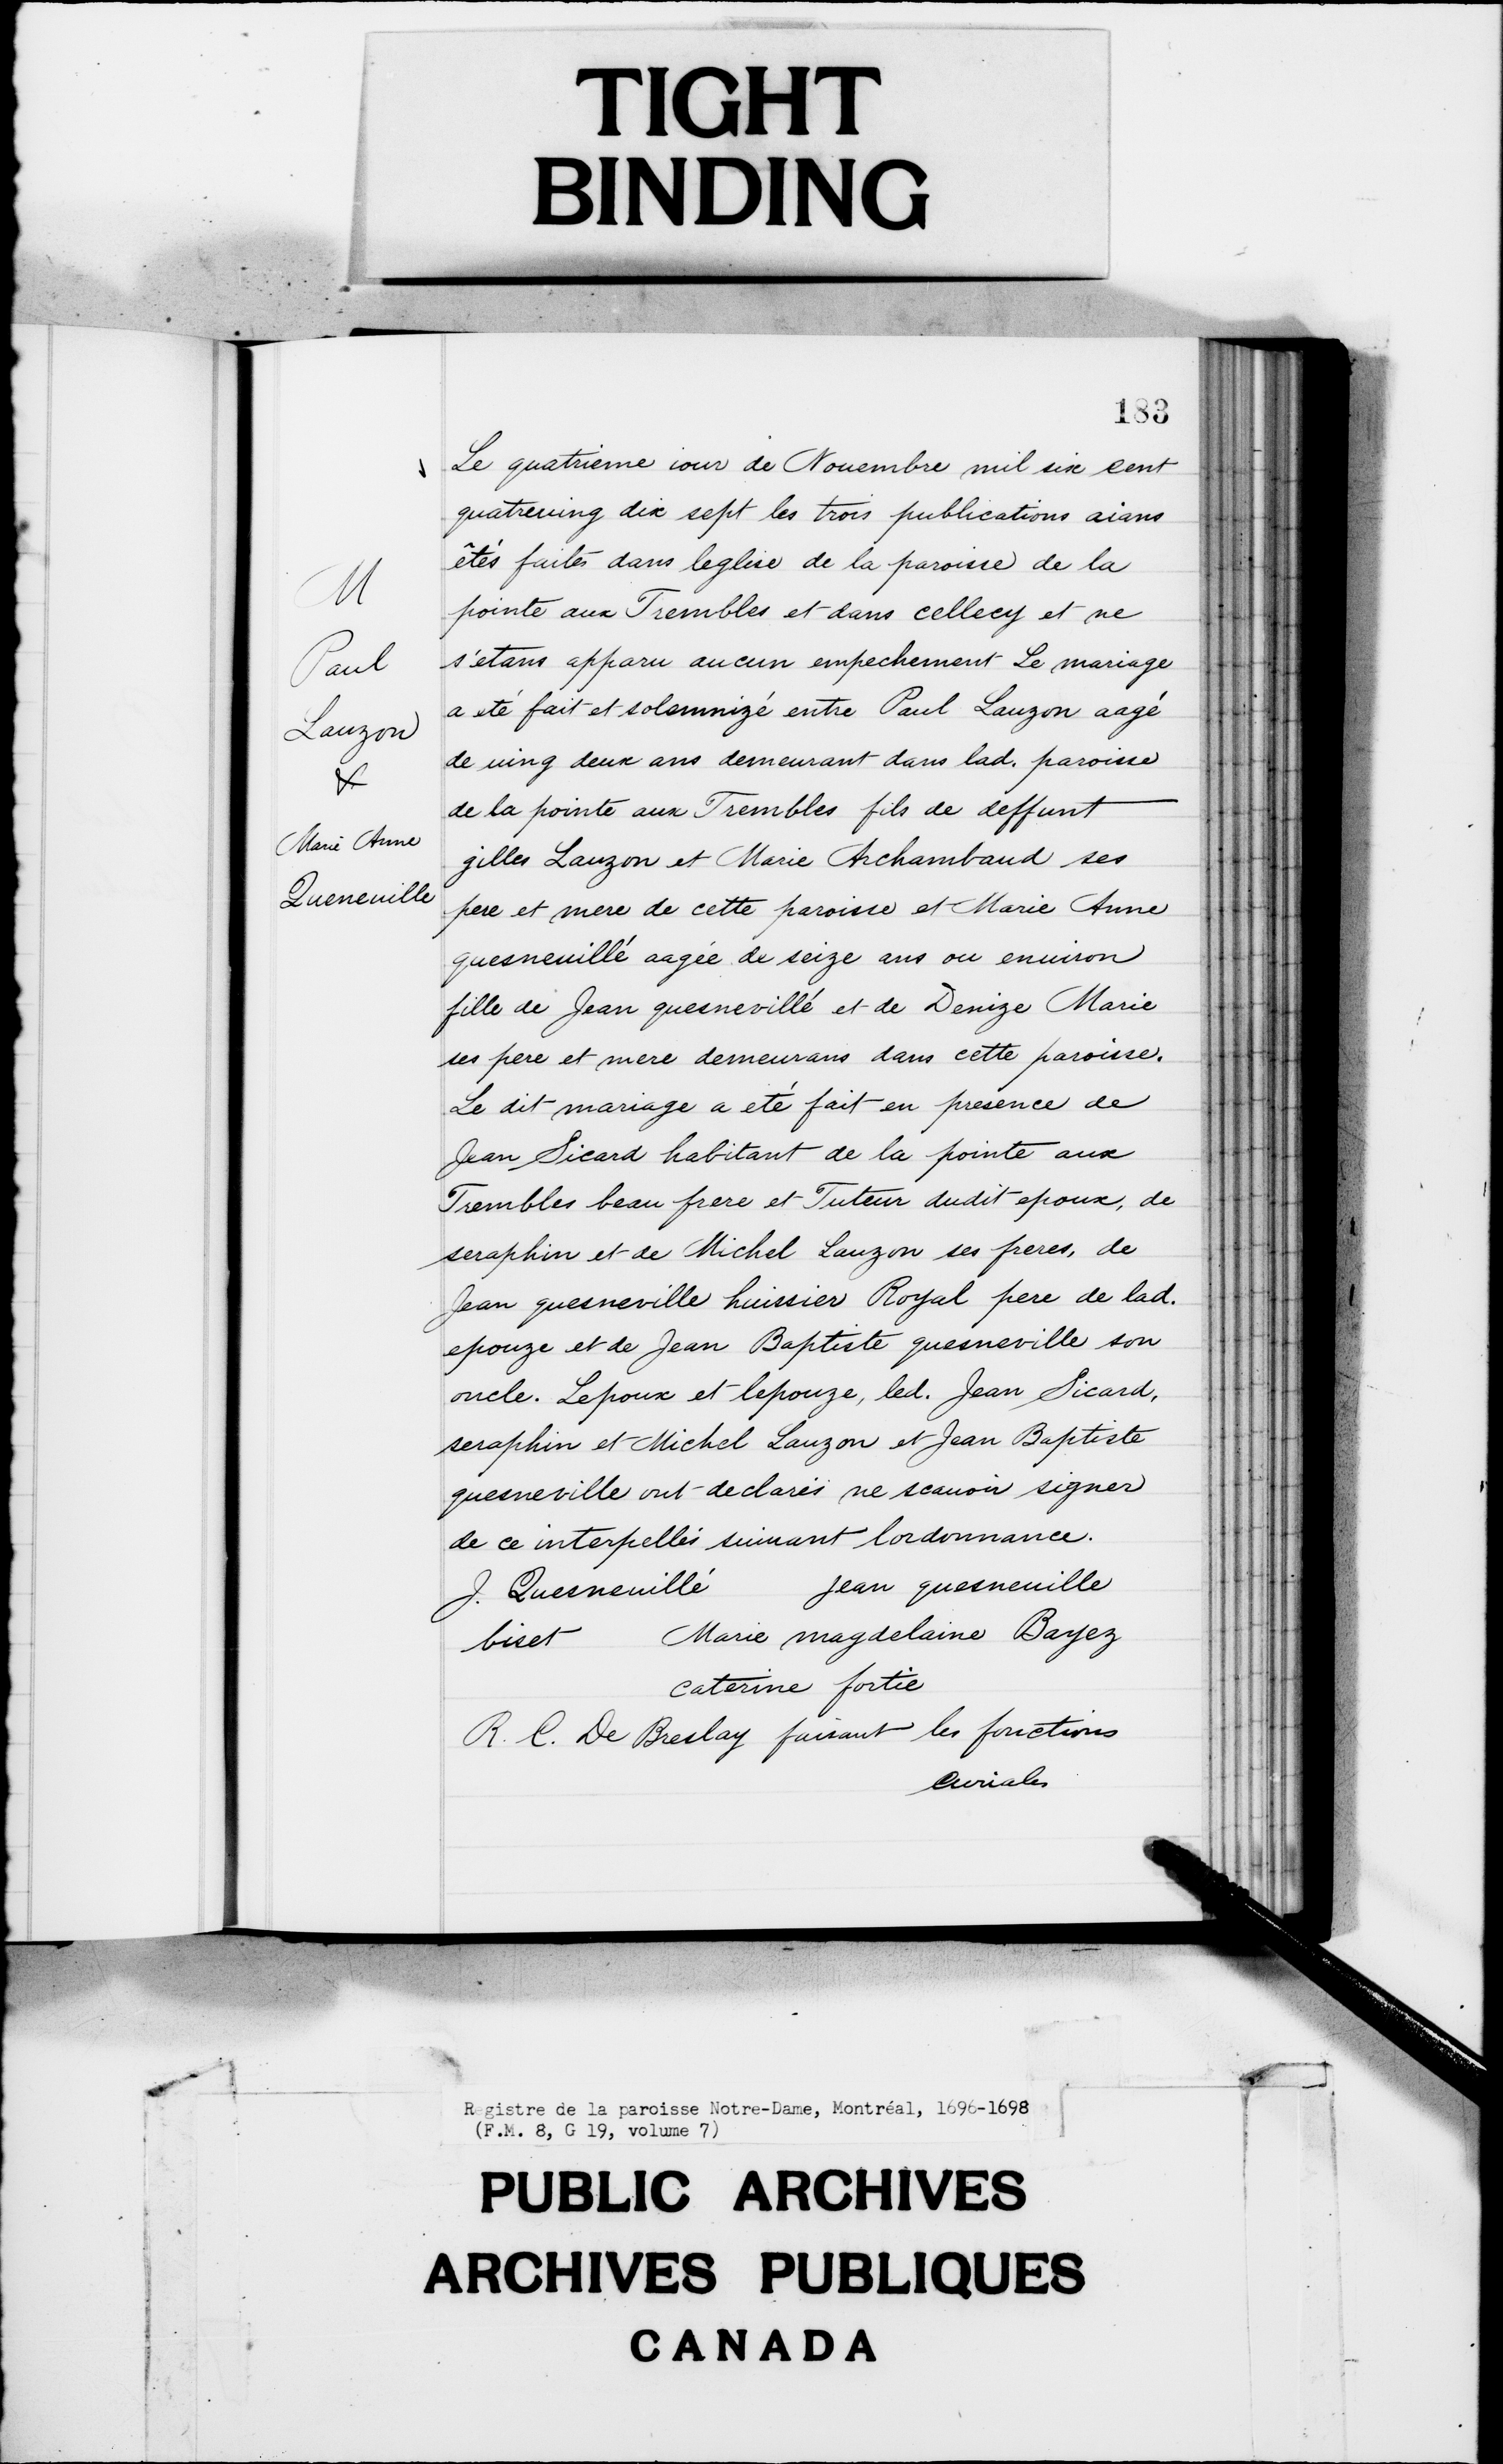 TIGHT
BINDING
183
Le quatrieme iour de Nouembre mil six cent
quatreuing dix sept les trois publications aians
êtés faites dans leglise de la paroisse de la
pointe aux Trembles et dans cellecy et ne
s'etans apparu aucun empechement Le mariage
a eté fait et solemnizé entre Paul Lauzon aagé
de uing deux ans demeurant dans lad. paroisse
de la pointe aux Trembles fils de deffunt
gilles Lauzon et Marie Archambaud ses
pere et mere de cette paroisse et Marie Anne
quesneuillé aagée de seize ans ou enuiron
fille de Jean quesnevillé et de Denize Marie
ses pere et mere demeurans dans cette paroisse.
Le dit mariage a eté fait en presence de
Jean Sicard habitant de la pointe aux
Trembles beau frere et Tuteur dudit epoux, de
seraphin et de Michel Lauzon ses freres, de
Jean quesneville huissier Royal pere de lad.
epouze et de Jean Baptiste quesneville son
oncle. Lepoux et lepouze, led. Jean Sicard,
seraphin et Michel Lauzon et Jean Baptiste
quesneville ont declarés ne scauoir signer
de ce interpellés suiuant lordonnance.
J. Quesneuillé jean quesneuille
biset Marie magdelaine Bayez
caterine fortie
R. C. De Breslay faisant les fonctions
Curiales
M
Paul
Lauzon
&
Marie Anne
Queneuille
Registre de la paroisse Notre-Dame, Montréal, 1696-1698
(F.M. 8, G 19, volume 7)
PUBLIC ARCHIVES
ARCHIVES PUBLIQUES
CANADA